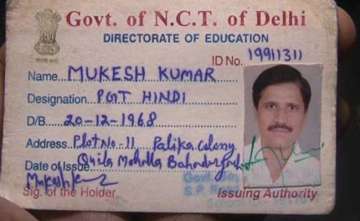 Govt. of N.C.T. of Delhi
DIRECTORATE OF EDUCATION
ID No. 19911311
Name MUKESH KUMAR
Designation PGT HINDI
D/B 20-12-1968
Address Plot No-11 Palika Colony
Quila Mohalla
Date of Issue
Sig. of the Holder Issuing Authority